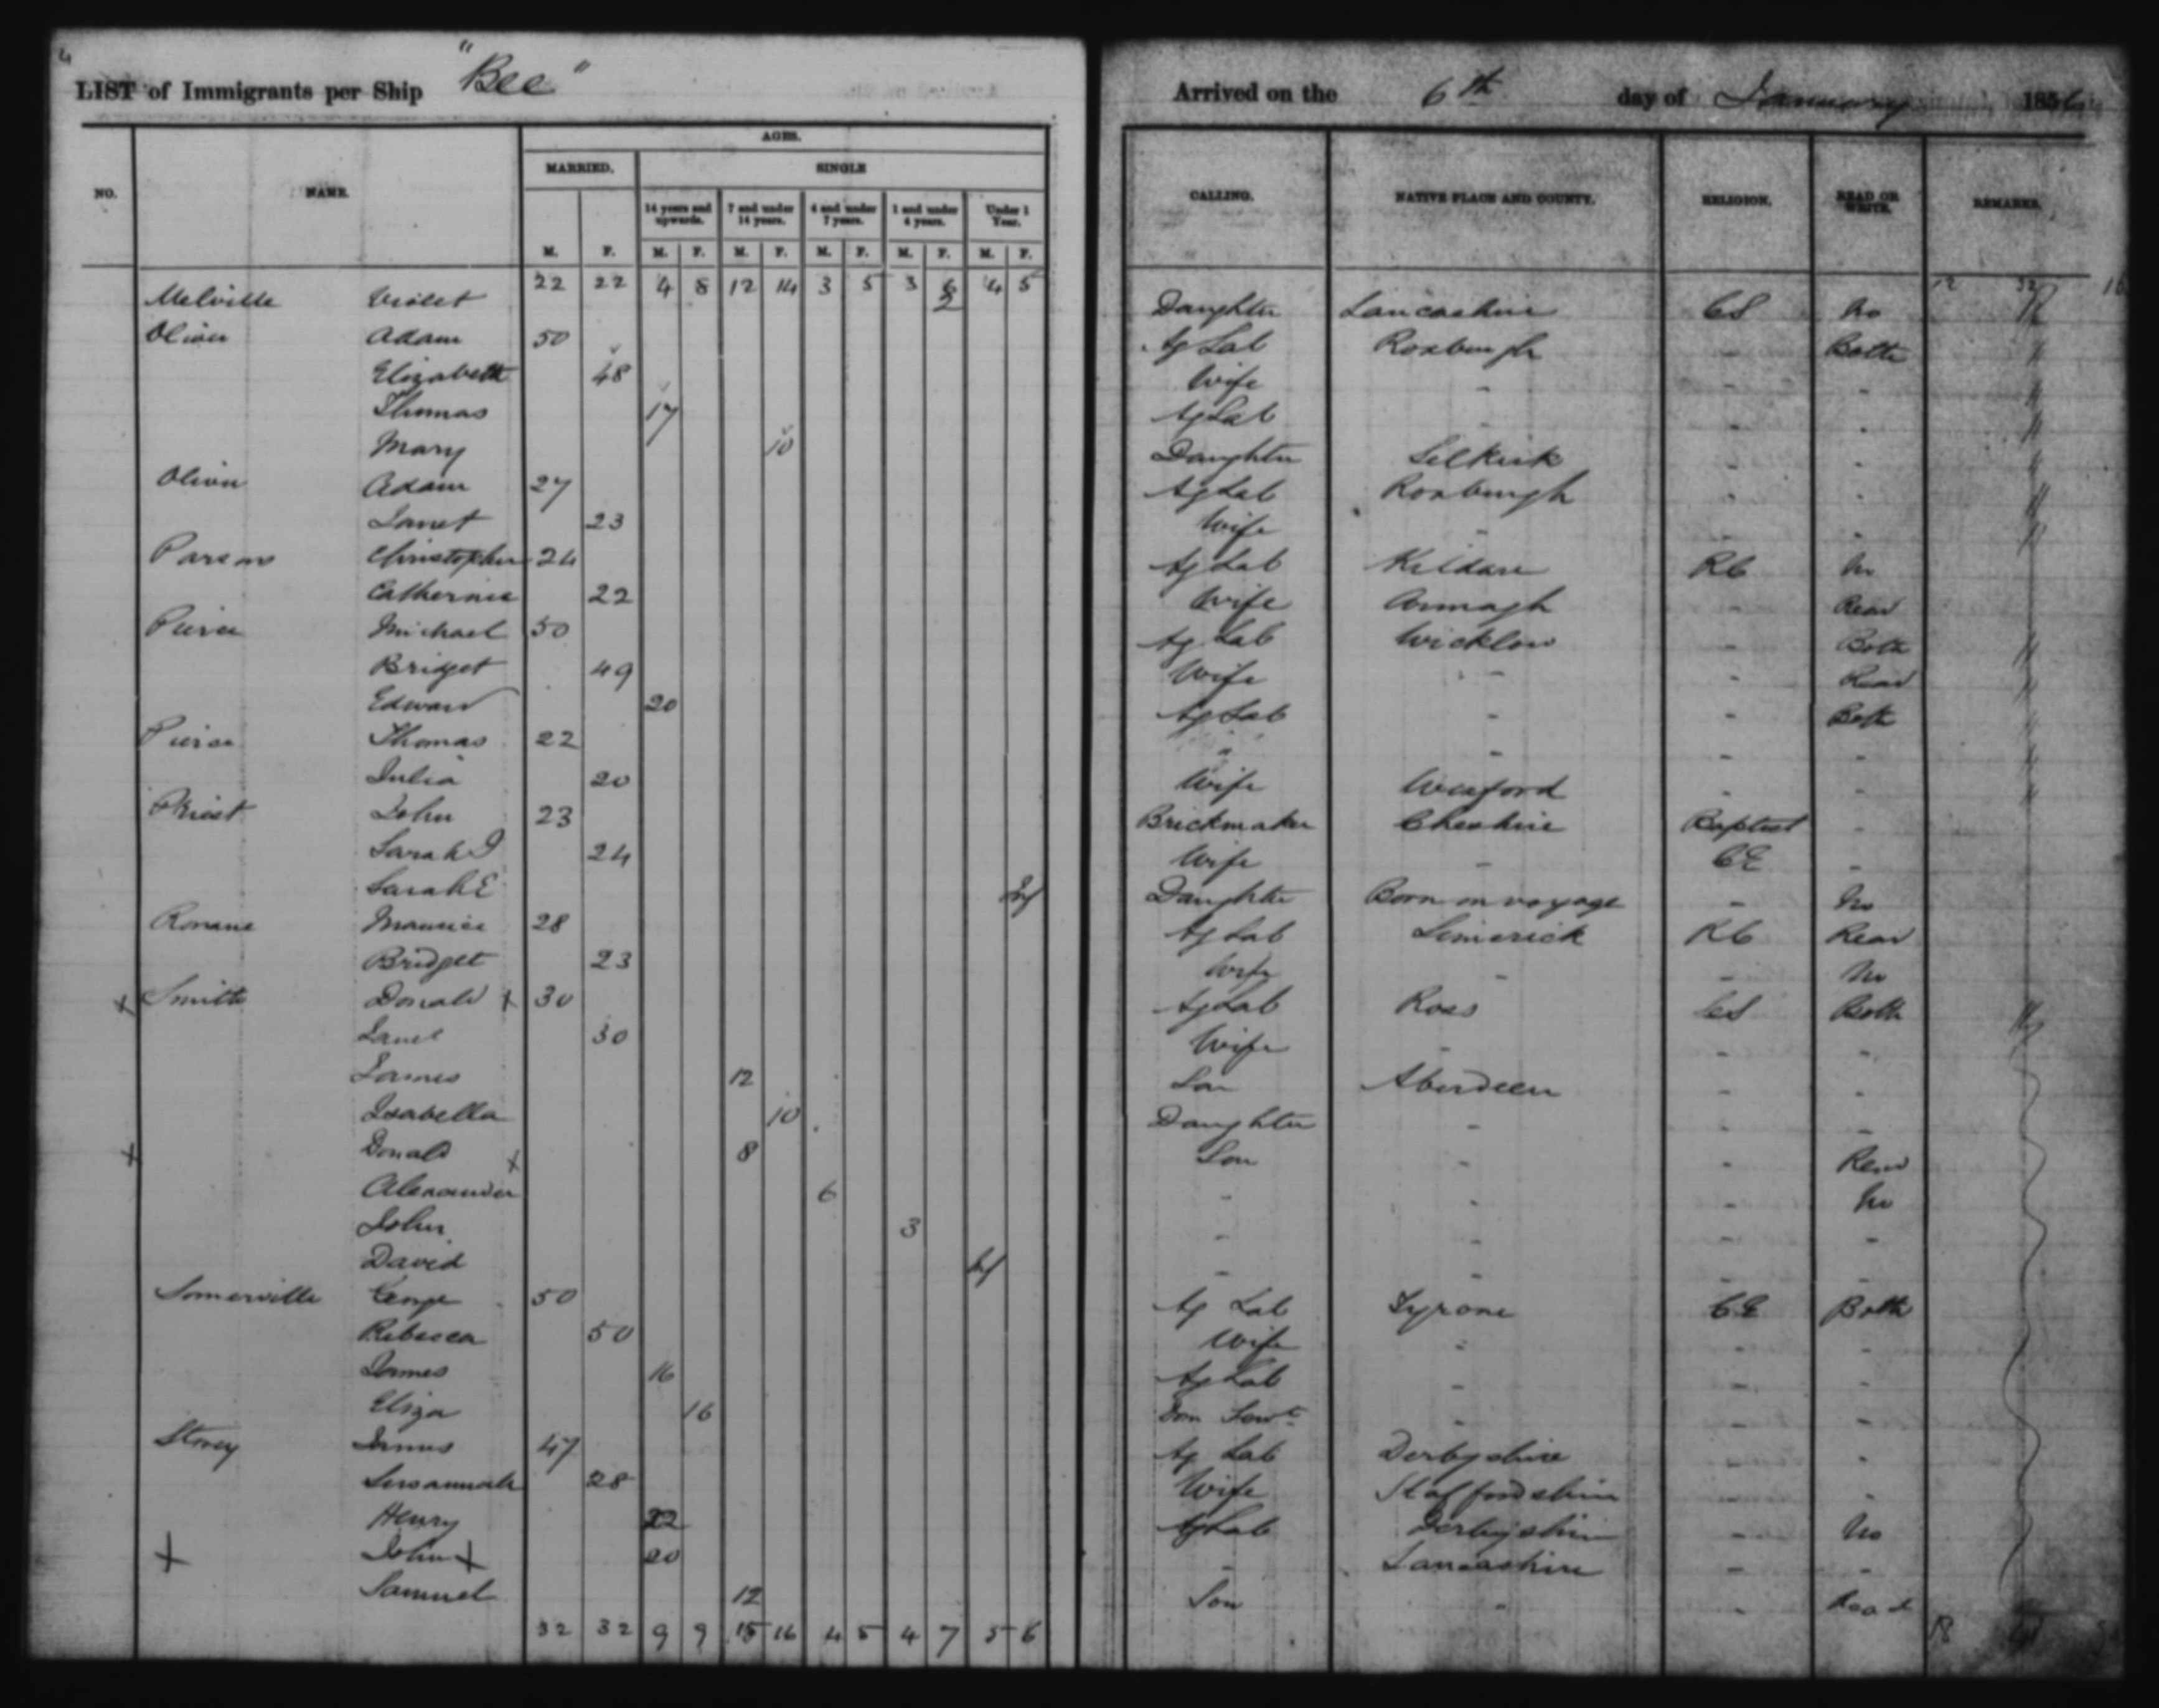 LIST of Immigrants per Ship "Bee" Arrived on the 6th day of January 1856
AGES.
MARRIED. SINGLE
NO. NAME. CALLING. NATIVE PLACE AND COUNTY. RELIGION. READ OR WRITE. REMARKS.
14 years and upwards. 7 and under 14 years. 4 and under 7 years. 1 and under 4 years. Under 1 Year.
M. F. M. F. M. F. M. F. M. F. M. F.
22 22 4 8 12 14 3 5 3 6 4 5
Melville Violet 2 Daughter Lancashire CS No
Oliver Adam 50 Ag Lab Roxburgh - Both
Elizabeth 48 Wife - - -
Thomas 17 Ag Lab - - -
Mary 10 Daughter Selkirk - -
Oliver Adam 27 Ag Lab Roxburgh - -
Janet 23 Wife - - -
Parsons Christopher 24 Ag Lab Kildare RC No
Catherine 22 Wife Armagh - Read
Pierce Michael 50 Ag Lab Wicklow - Both
Bridget 49 Wife - - Read
Edward 20 Ag Lab - - Both
Pierce Thomas 22 " - - -
Julia 20 Wife Wexford - -
Priest John 23 Brickmaker Cheshire Baptist -
Sarah J 24 Wife - CE -
Sarah E Inf Daughter Born on voyage - No
Ronane Maurice 28 Ag Lab Limerick RC Read
Bridget 23 Wife - - No
x Smith Donald x 30 Ag Lab Ross CS Both
Janet 30 Wife - - -
James 12 Son Aberdeen - -
Isabella 10 Daughter - - -
x Donald x 8 Son - - Read
Alexander 6 - - - No
John 3 - - - -
David Inf - - - -
Somerville George 50 Ag Lab Tyrone CE Both
Rebecca 50 Wife - - -
James 16 Ag Lab - - -
Eliza 16 Dom Servt - - -
Storey James 47 Ag Lab Derbyshire - -
Susannah 28 Wife Staffordshire - -
Henry 22 Ag Lab Derbyshire - No
x John x 20 - Lancashire - -
Samuel 12 Son - - Read
32 32 9 9 15 16 4 5 4 7 5 6